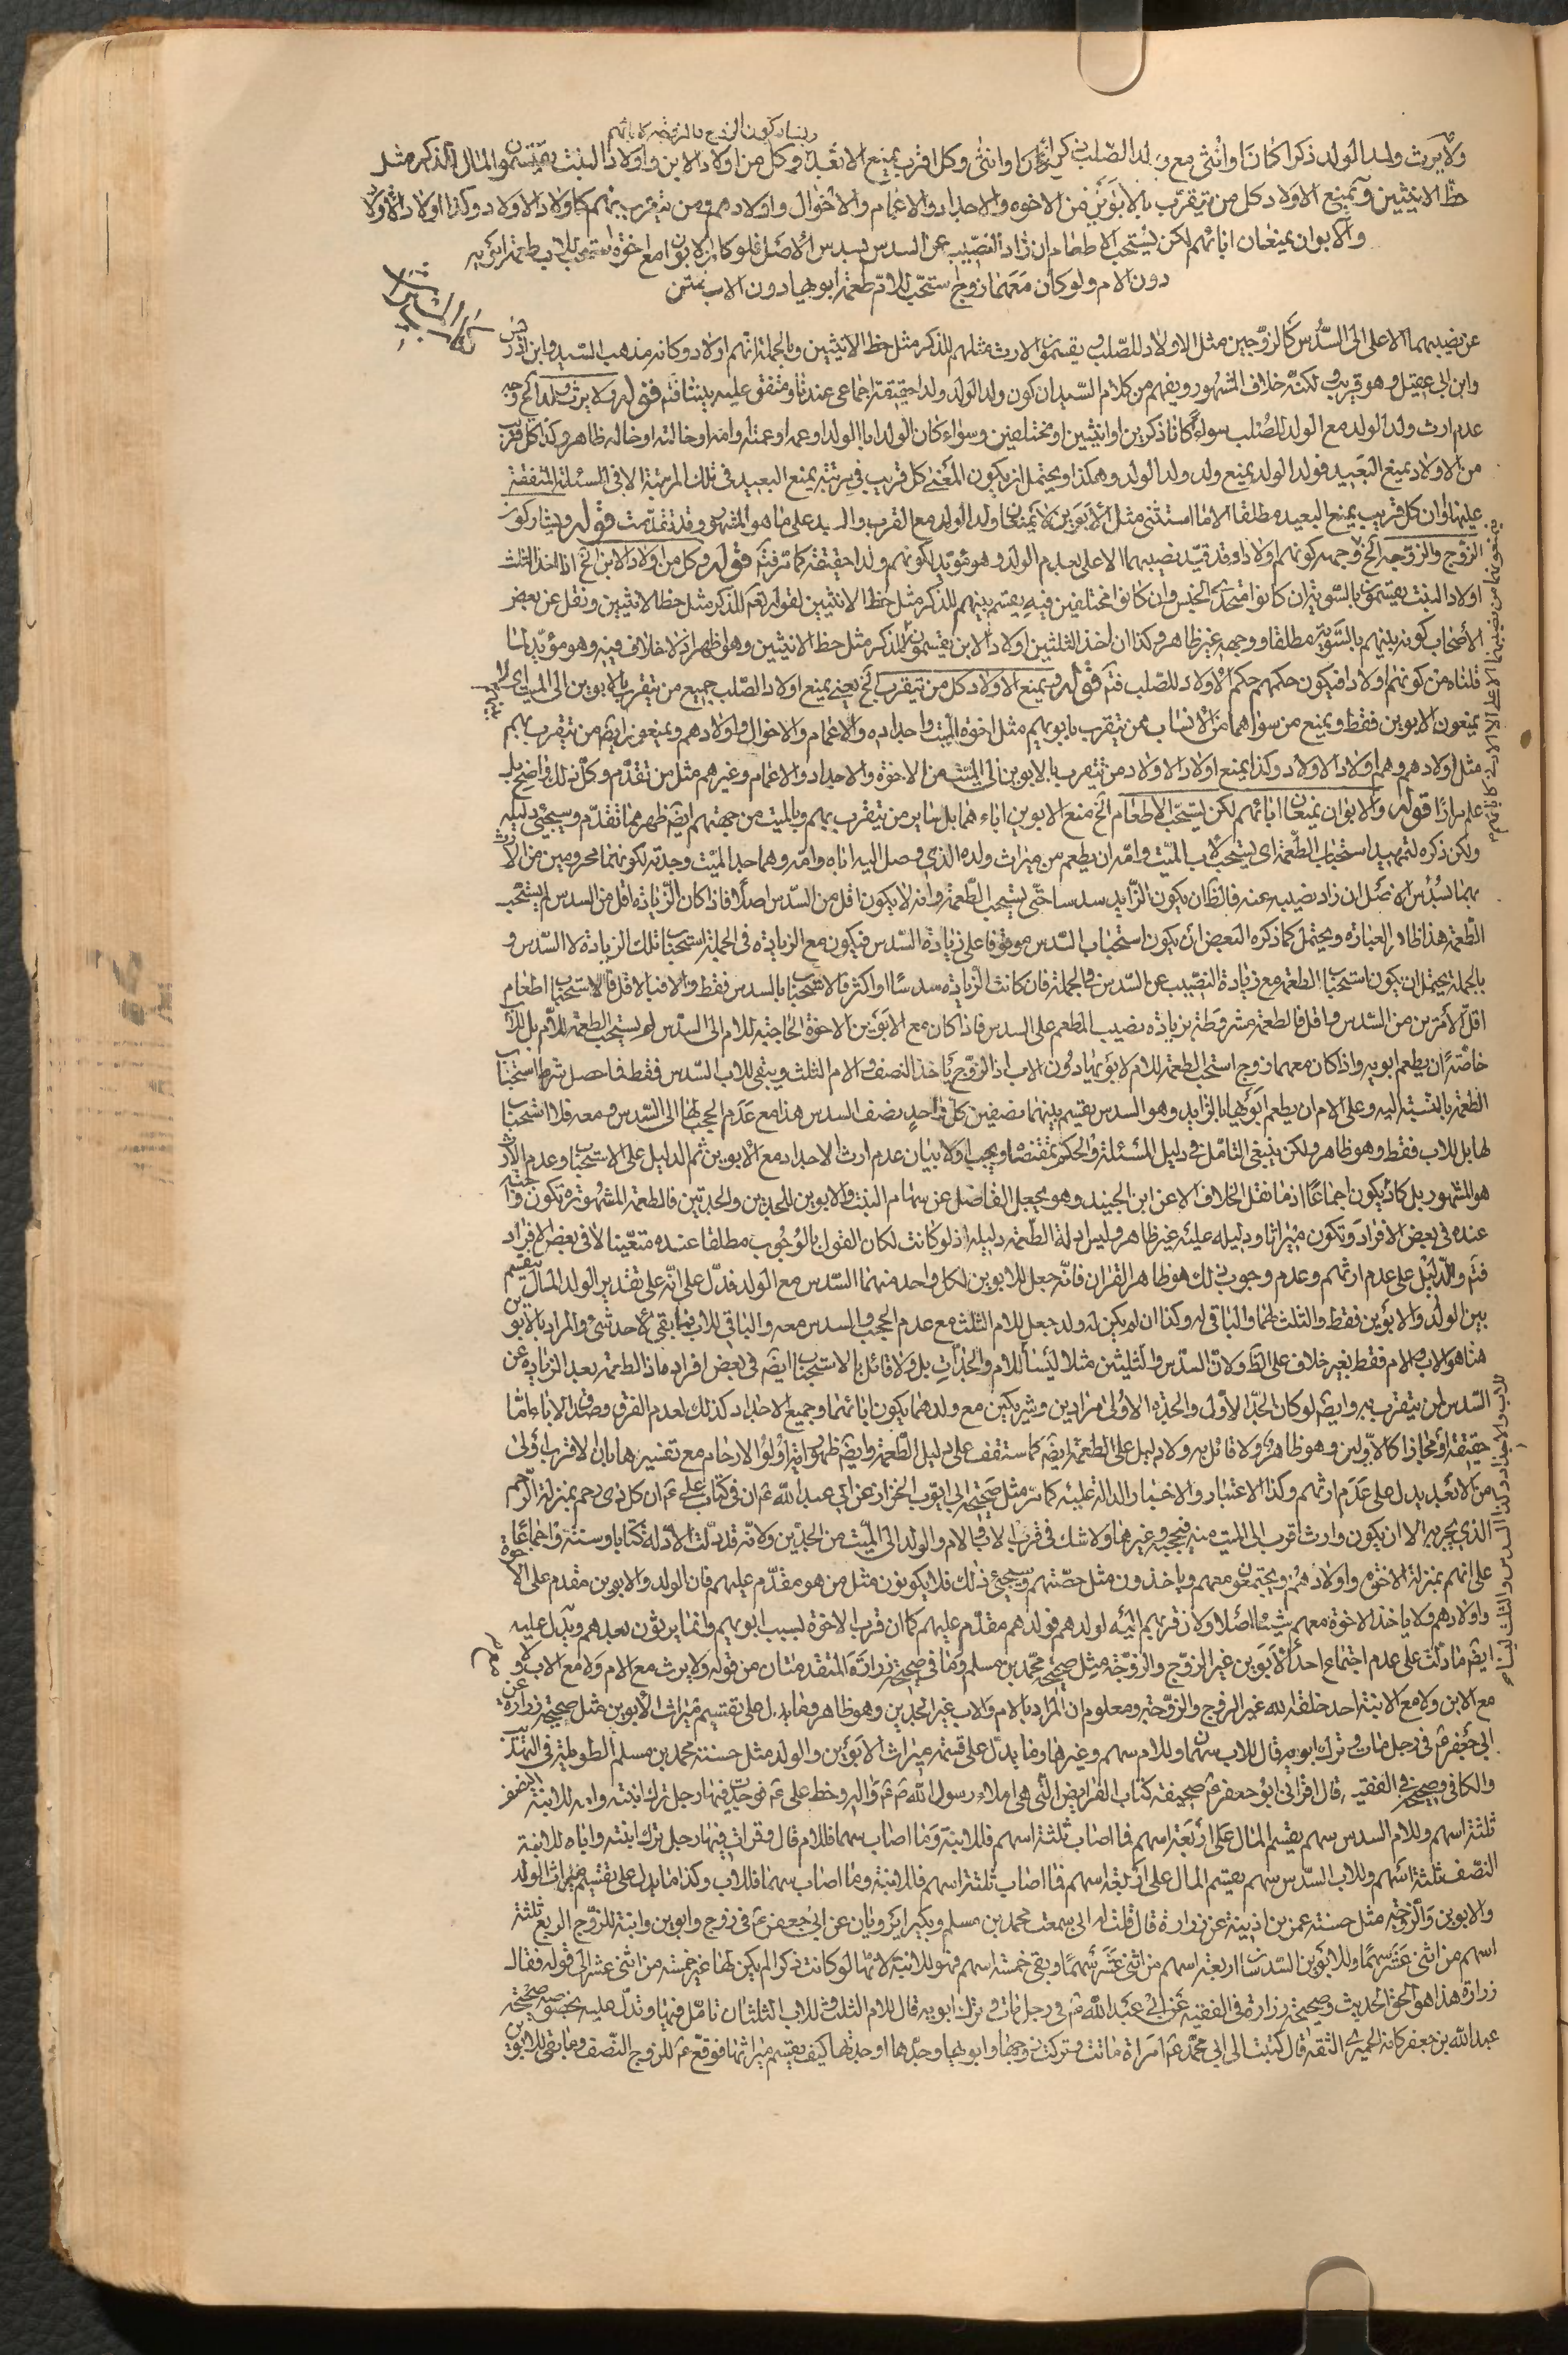 ويشاركون الزوج والزوجة كآبائهم
ولا يرث ولد الولد ذكرا كان او انثى مع ولد الصلب ذكرا كان او انثى وكل اقرب يمنع الابعد وكل من اولاد الابن واولاد البنت يقتسمون المال للذكر مثل
حظ الانثيين ويمنع الاولاد كل من يتقرب بالابوين من الاخوة والاجداد والاعمام والاخوال واولادهم ومن يتقرب بهم كاولاد الاولاد وكذا اولاد الاولاد
والابوان يمنعان اباءهم لكن يستحب الاطعام ان زاد النصيب عن السدس بسدس الاصل فلو كان الابوان مع اخوة يستحب للاب طعمة ابويه
دون الام ولو كان معهما زوج استحب للام طعمة ابويها دون الاب متن
عن نصيبهما الاعلى الى السدس كالزوجين مثل الاولاد للصلب ويقسمون الارث مثلهم للذكر مثل حظ الانثيين وبالجملة انهم اولاد وكانه مذهب السيد وابن ادريس
وابن ابي عقيل وهو قريب لكنه خلاف المشهور ويفهم من كلام السيد ان كون ولد الولد ولدا حقيقة اجماعى عندنا ومتفق عليه بيننا فتم قوله ولا يرث ولد الخ وجه
عدم ارث ولد الولد مع الولد للصلب سواء كانا ذكرين او انثيين او مختلفين وسواء كان الولد ابا الولد او عمه او عمته وامه او خالته او خاله ظاهر وكذا كل قريب
من الاولاد يمنع البعيد فولد الولد يمنع ولد ولد الولد وهكذا ويحتمل ان يكون المعنى كل قريب في مرتبة يمنع البعيد في تلك المرتبة الا في المسئلة المتفقة
عليها او ان كل قريب يمنع البعيد مطلقا الا ما استثنى مثل الابوين لا يمنعان ولد الولد مع القرب والبعد على ما هو المشهور وقد تقدمت قوله ويشاركون
الزوج والزوجة الخ وجهه كونهم اولادا وقد قيد نصيبهما الاعلى بعدم الولد وهو مؤيد لكونهم ولدا حقيقة كما مر فتم قوله وكل من اولاد الابن الخ اذا اخذ الثلث
اولاد البنت يقتسمون بالسوية ان كانوا متحدى الجنس وان كانوا مختلفين فيه يقتسم بينهم للذكر مثل حظ الانثيين لقوله تعالى للذكر مثل حظ الانثيين ونقل عن بعض
الأصحاب كونه بينهم بالتسوية مطلقا ووجهه غير ظاهر وكذا ان اخذ الثلثين اولاد الابن يقسمون للذكر مثل حظ الانثيين وهو اظهر اذ لا خلاف فيه وهو مؤيد لما
قلناه من كونهم اولادا فيكون حكمهم حكم الاولاد للصلب فتم قوله ويمنع الاولاد كل من يتقرب الخ يعنى يمنع اولاد الصلب جميع من يتقرب بالابوين الى الميت اى لا
يمنعون الابوين فقط ويمنع من سواهما من الانساب ممن يتقرب بابويهم مثل اخوة الميت واجداده والاعمام والاخوال واولادهم ويمنعون ايضا من يتقرب بهم
مثل اولادهم وهم اولاد الاولاد وكذا يمنع اولاد الاولاد من يتقرب بالابوين الى الميت من الاخوة والاجداد والاعمام وغيرهم مثل من تقدم وكل ذلك واضح بلا
علم مرارا قوله والابوان يمنعان اباءهم لكن يستحب الاطعام الخ منع الابوين اباءهما بل سائر من يتقرب بهم وبالميت من جهتهم ايضا ظهر مما تقدم وسيجئ دليله
ولكن ذكره لتمهيد استحباب الطعمة اى يستحب لاب الميت وامه ان يطعم من ميراث ولده الذي وصل اليه اباه وامه وهما جد الميت وجدته لكونهما محرومين من الارث
بهما سدس الاصل ان زاد نصيبه عنه فالظ ان يكون الزايد سدسا حتى يستحب الطعمة وانه لا يكون اقل من السدس اصلا فاذا كان الزيادة اقل من السدس لم يستحب
الطعمة هذا ظاهر العبارة ويحتمل كما ذكره البعض ان يكون استحباب السدس موقوفا على زيادة السدس فيكون مع الزيادة في الجملة استحباب تلك الزيادة لا السدس و
بالجملة يحتمل ان يكون استحباب الطعمة مع زيادة النصيب عن السدس في الجملة فان كانت الزيادة سدسا او اكثر فالاستحباب بالسدس فقط والا فبالاقل فالاستحباب اطعام
اقل الامرين من السدس واقل فالطعمة مشروطة بزيادة نصيب المطعم على السدس فاذا كان مع الابوين الاخوة الحاجبة للام الى السدس لم يستحب الطعمة للام بل للاب
خاصة ان يطعم ابويه واذا كان معهما زوج استحب الطعمة للام لابويها دون الاب اذ الزوج ياخذ النصف والام الثلث ويبقى للاب السدس فقط فما حصل شرط استحباب
الطعمة بالنسبة اليه وعلى الام ان يطعم ابويها بالزايد وهو السدس يقسم بينهما نصفين كل واحد نصف السدس هذا مع عدم الحجب لها الى السدس ومعه فلا استحباب
لها بل للاب فقط وهو ظاهر ولكن ينبغي التامل في دليل المسئلة والحكم بمقتضاه ويجب اولا بيان عدم ارث الاجداد مع الابوين ثم الدليل على الاستحباب وعدم الارث
هو المشهور بل كاد يكون اجماعا اذ ما نقل الخلاف الا عن ابن الجنيد وهو يجعل الفاضل عن سهام البنت والابوين للجدين والجدتين فالطعمة المشهورة تكون واجبة
عنده في بعض الافراد وتكون ميراثا ودليله عليه غير ظاهر وليس ادلة الطعمة دليله اذ لو كانت لكان القول بالوجوب مطلقا عنده متعينا لا في بعض الافراد
فتم والدليل على عدم ارثهم وعدم وجوب ذلك هو ظاهر القران فانه جعل للابوين لكل واحد منهما السدس مع الولد فدل على انه على تقدير الولد المال ينقسم
بين الولد والابوين فقط والثلث لهما والباقى له وكذا ان لم يكن له ولد جعل للام الثلث مع عدم الحجب والسدس معه والباقي للاب فما بقى لاحد شئ والمراد بالابوين
هنا هو الاب والام فقط بغير خلاف على الظ ولان السدس والثلثين مثلا ليسا للام والجدات بل ولا قائل بالاستحباب ايضا في بعض افراد ماذا الطعمة بعد الزيادة عن
السدس لمن يتقرب به وايضا لو كان الجد الاول والجدة الاولى مرادين وشريكين مع ولدهما يكون اباءهما وجميع الاجداد كذلك لعدم الفرق وصدق الاباء اما
حقيقة او مجازا كالاولين وهو ظاهر ولا قائل به ولا دليل على الطعمة ايضا كما ستقف على دليل الطعمة وايضا ظهور اية اولوا الارحام مع تفسيرها بان الاقرب اولى
من الابعد يدل على عدم ارثهم وكذا الاعتبار والاخبار الدالة عليه كما مر مثل صحيحة ابي ايوب الخزاز عن ابي عبد الله ع ان في كتاب على ع ان كل ذى رحم بمنزلة الرحم
الذي يجر به الا ان يكون وارث اقرب الى الميت منه فيحجبه وغيرها ولا شك في قرب الاب والام والولد الى الميت من الجدين ولانه قد دلت الادلة كتابا وسنة واجماعا
على انهم بمنزلة الاخوة واولادهم ويجتمعون معهم وياخذون مثل حصتهم وسيجئ ذلك فلا يكونون مثل من هو مقدم عليهم فان الولد والابوين مقدم على الاخوة
واولادهم ولا ياخذ الاخوة معهم شيئا اصلا ولان قربهم اليه لولدهم فولدهم مقدم عليهم كما ان قرب الاخوة بسبب ابويهم وانما يرثون بعدهم ويدل عليه
ايضا ما دلت على عدم اجتماع احد الابوين غير الزوج والزوجة مثل صحيحة محمد بن مسلم وما في صحيحة زرارة المتقدمتان من قوله ولا يرث مع الام ولا مع الاب ولا
مع الابن ولا مع الابنة احد خلقه الله غير الزوج والزوجة ومعلوم ان المراد بالام والاب غير الجدين وهو ظاهر وما يدل على تقسيم ميراث الابوين مثل صحيحة زرارة عن
ابي جعفر ع في رجل مات وترك ابويه قال للاب سهمان وللام سهم وغيرها وما يدل على قسمة ميراث الابوين والولد مثل حسنة محمد بن مسلم الطويلة في التهذيب
والكافي وصحيحة في الفقيه قال اقرانى ابو جعفر ع صحيفة كتاب الفرايض التى هى املاء رسول الله ص واله وخط على ع فوجدت فيها رجل ترك ابنته وامه للابنة النصف
ثلثة اسهم وللام السدس سهم يقسم المال على اربعة اسهم فما اصاب ثلثة اسهم فللابنة وما اصاب سهما فللام قال وقرات فيها رجل ترك ابنته واباه للابنة
النصف ثلثة اسهم وللاب السدس سهم يقسم المال على اربعة اسهم فما اصاب ثلثة اسهم فللابنة وما اصاب سهما فللاب وكذا ما يدل على تقسيم ميراث الولد
والابوين والزوجة مثل حسنة عمر بن اذينة عن زرارة قال قلت له انى سمعت محمد بن مسلم وبكيرا يرويان عن ابي جعفر ع في زوج وابوين وابنة للزوج الربع ثلثة
اسهم من اثنى عشر سهما وللابوين السدسان اربعة اسهم من اثنى عشر سهما وبقى خمسة اسهم فهو للابنة لانها لو كانت ذكرا لم يكن لها غير خمسة من اثنى عشر الى قوله فقال
زرارة هذا هو الحق الحديث وصحيحة زرارة في الفقيه عن ابي عبد الله ع في رجل مات وترك ابويه قال للام الثلث وللاب الثلثان تامل فيها وتدل عليه بخصوصه صحيحة
عبد الله بن جعفر كانه الحميرى الثقة قال كتبت الى ابي محمد ع امراة ماتت وتركت زوجها وابويها وجدها او جدتها كيف يقسم ميراثها فوقع ع للزوج النصف وما بقى للابوين